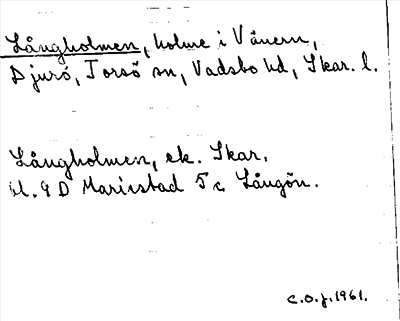 Långholmen, holme i Vänern,
Djurö, Torsö sn, Vadsbo hd, Skar. l.
Långholmen, ek. Skar.
bl. 9 D Mariestad 5 c Långön.
C.O.J. 1961.